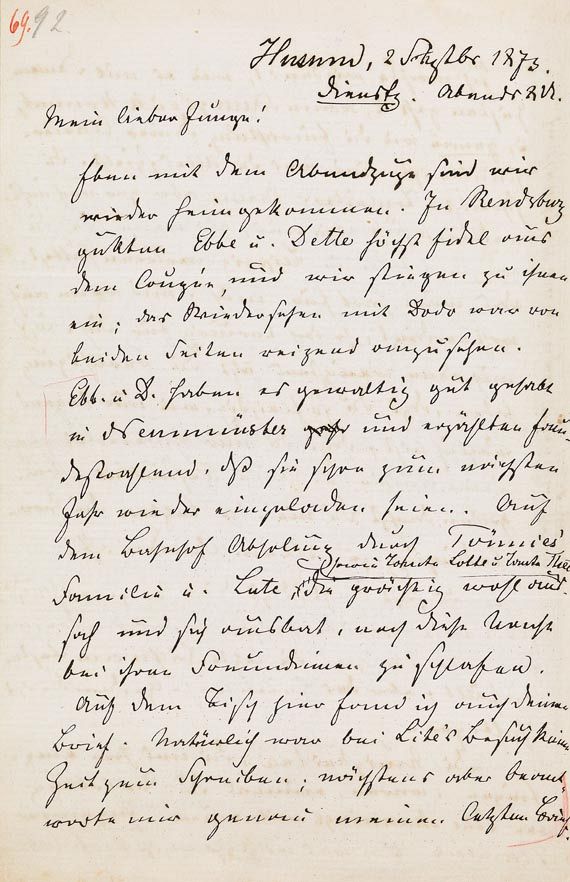 69. 92.
Husum, 2 Septbr 1873.
Dienstg. Abends 8 U.
Mein lieber Junge!
Eben mit dem Abendzuge sind wir
wieder heimgekommen. In Rendsburg
gukten Ebbe u. Dette höchst fidel aus
dem Coupée, und wir stiegen zu ihnen
ein; das Wiedersehen mit Dodo war von
beiden Seiten reizend anzusehen.
Ebb. u D. haben es gewaltig gut gehabt
in Neumünster und erzählten freu-
destrahlend, dß sie schon zum nächsten
Jahr wieder eingeladen seien. Auf
dem Bahnhof Abholung durch Tönnies'
sowie Tante Lotte u Tante
Familie u. Lute, die prächtig wohl aus-
sah und sich ausbat, noch diese Nacht
bei ihren Freundinnen zu schlafen.
Auf dem Tisch hier fand ich auch deinen
Brief. Natürlich war bei Lite's Besuch keine
Zeit zum Schreiben; nächstens aber beant-
worte mir genau meinen letzten Brief.